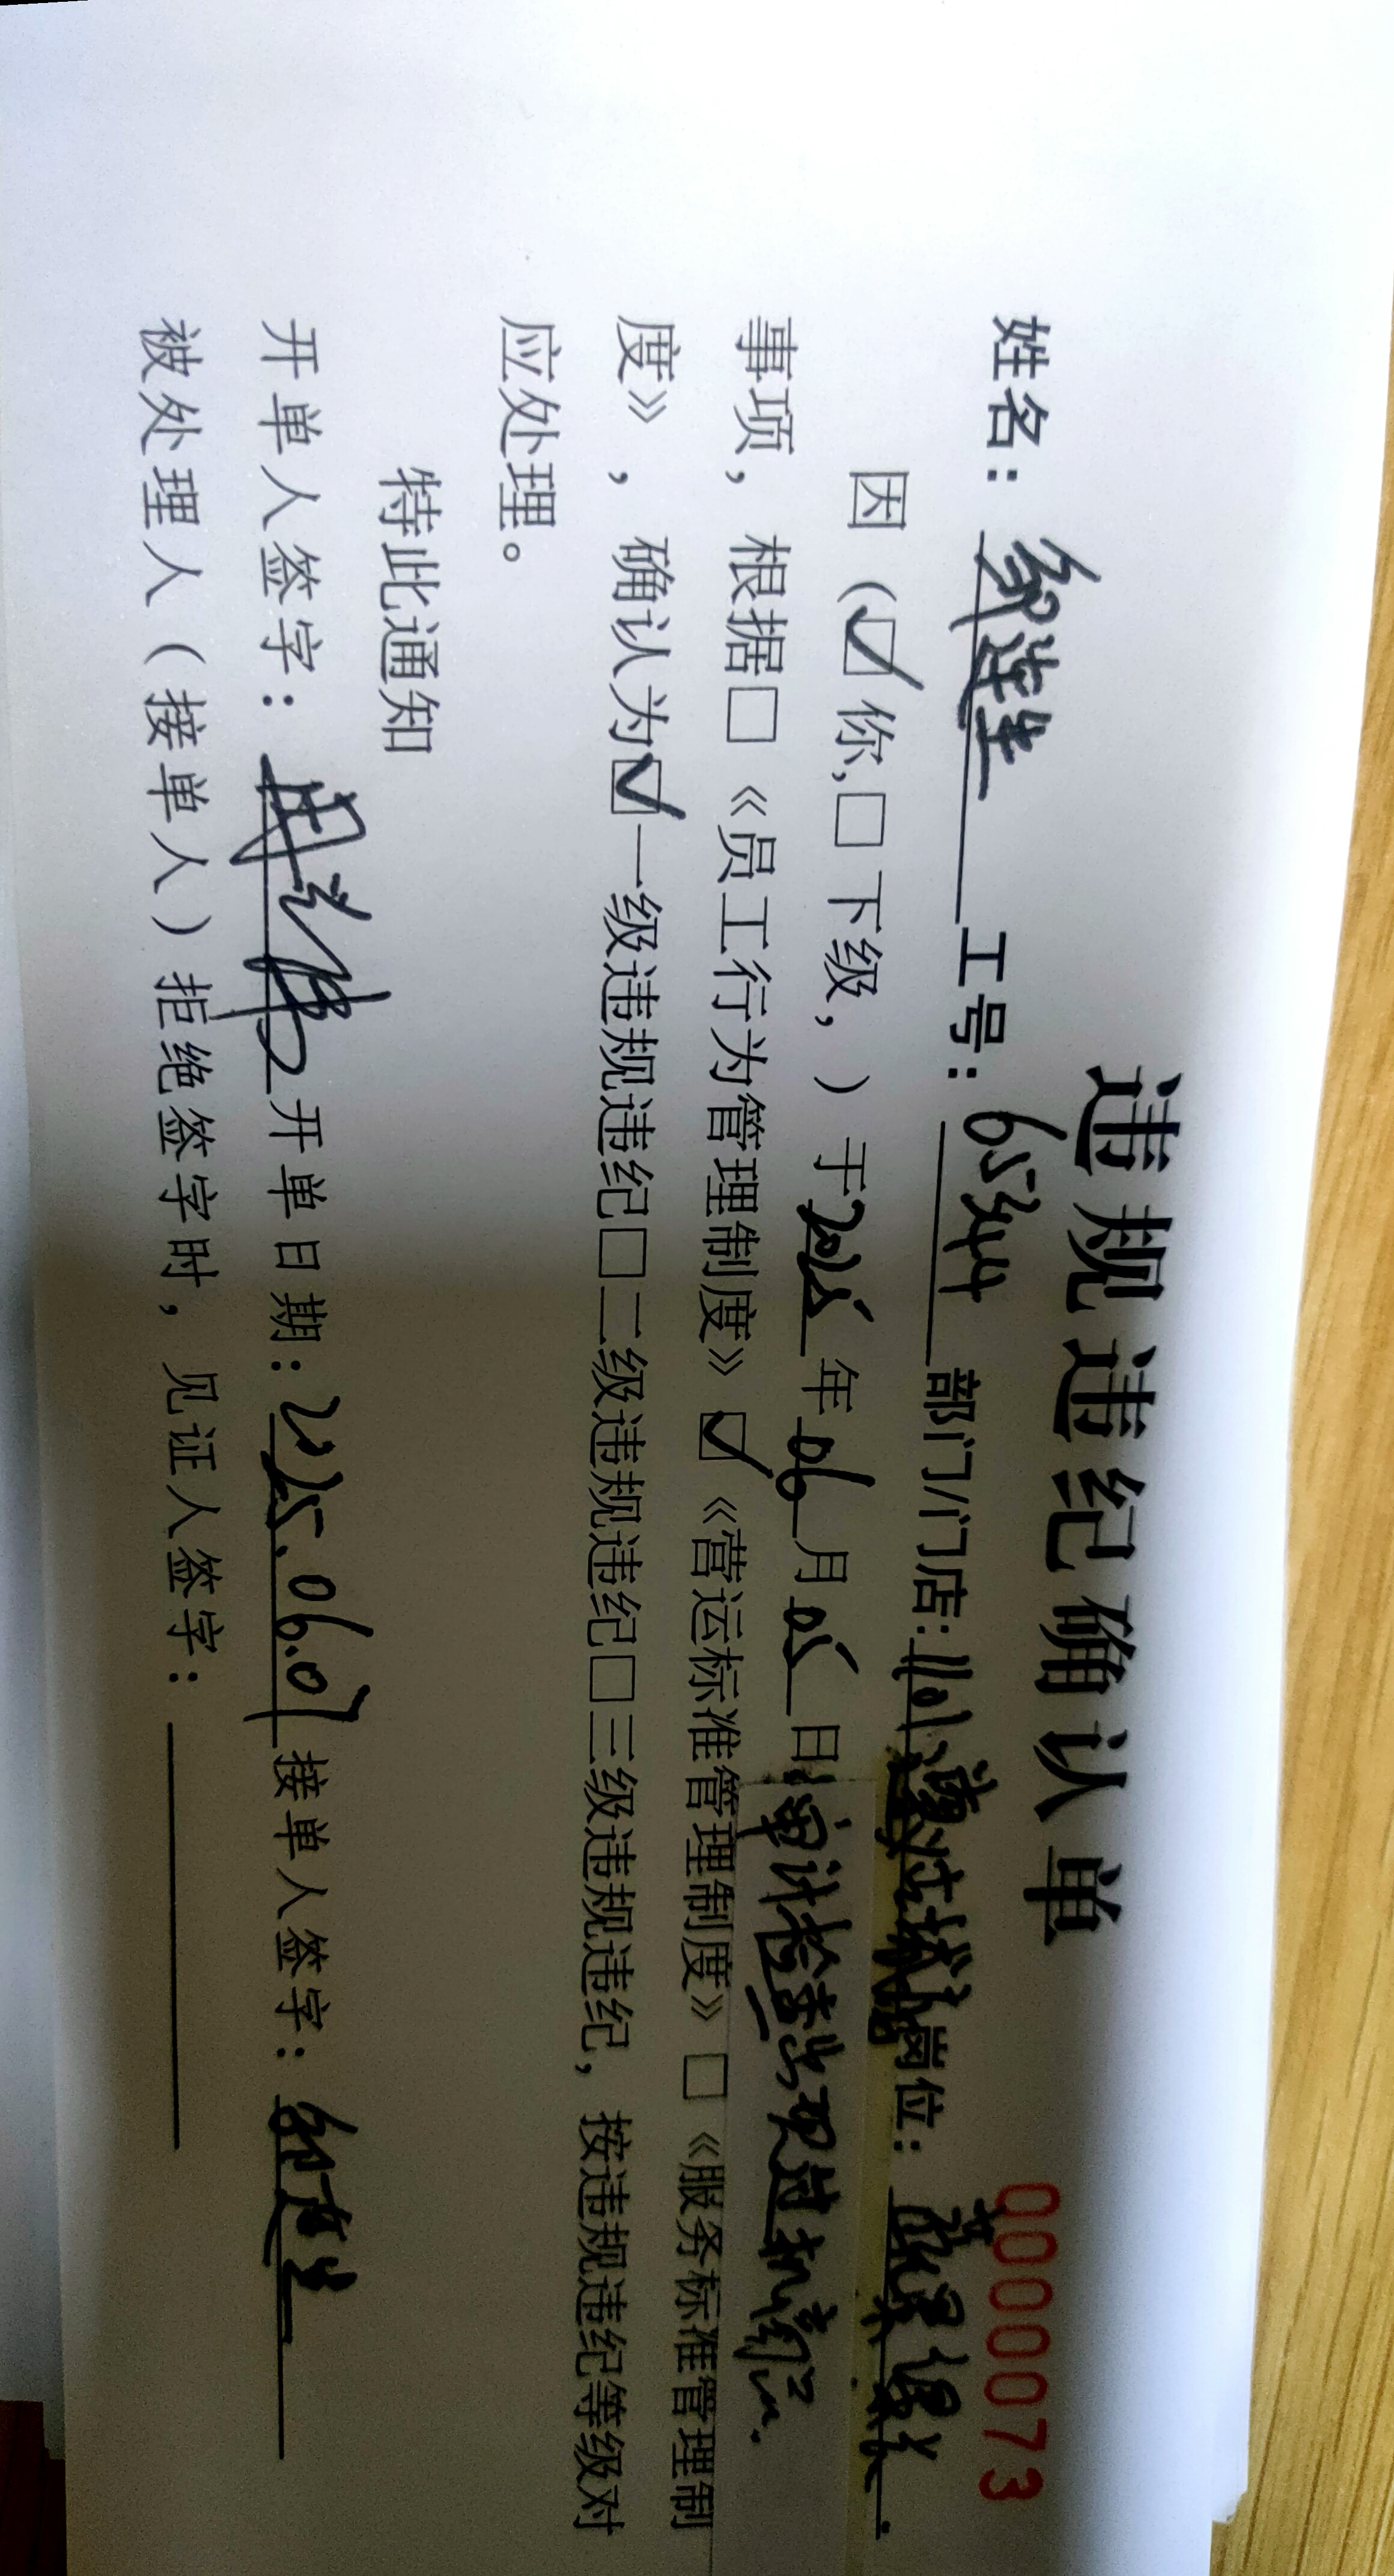 违规违纪确认单
0000073
姓名： 工号：65344 部门/门店： 岗位：
因（☑你,□下级,）于2025年06月05日审计检查出现过机商品
事项，根据□《员工行为管理制度》☑《营运标准管理制度》□《服务标准管理制
度》，确认为☑一级违规违纪□二级违规违纪□三级违规违纪，按违规违纪等级对
应处理。
特此通知
开单人签字： 开单日期：2025.06.07 接单人签字：
被处理人（接单人）拒绝签字时，见证人签字：